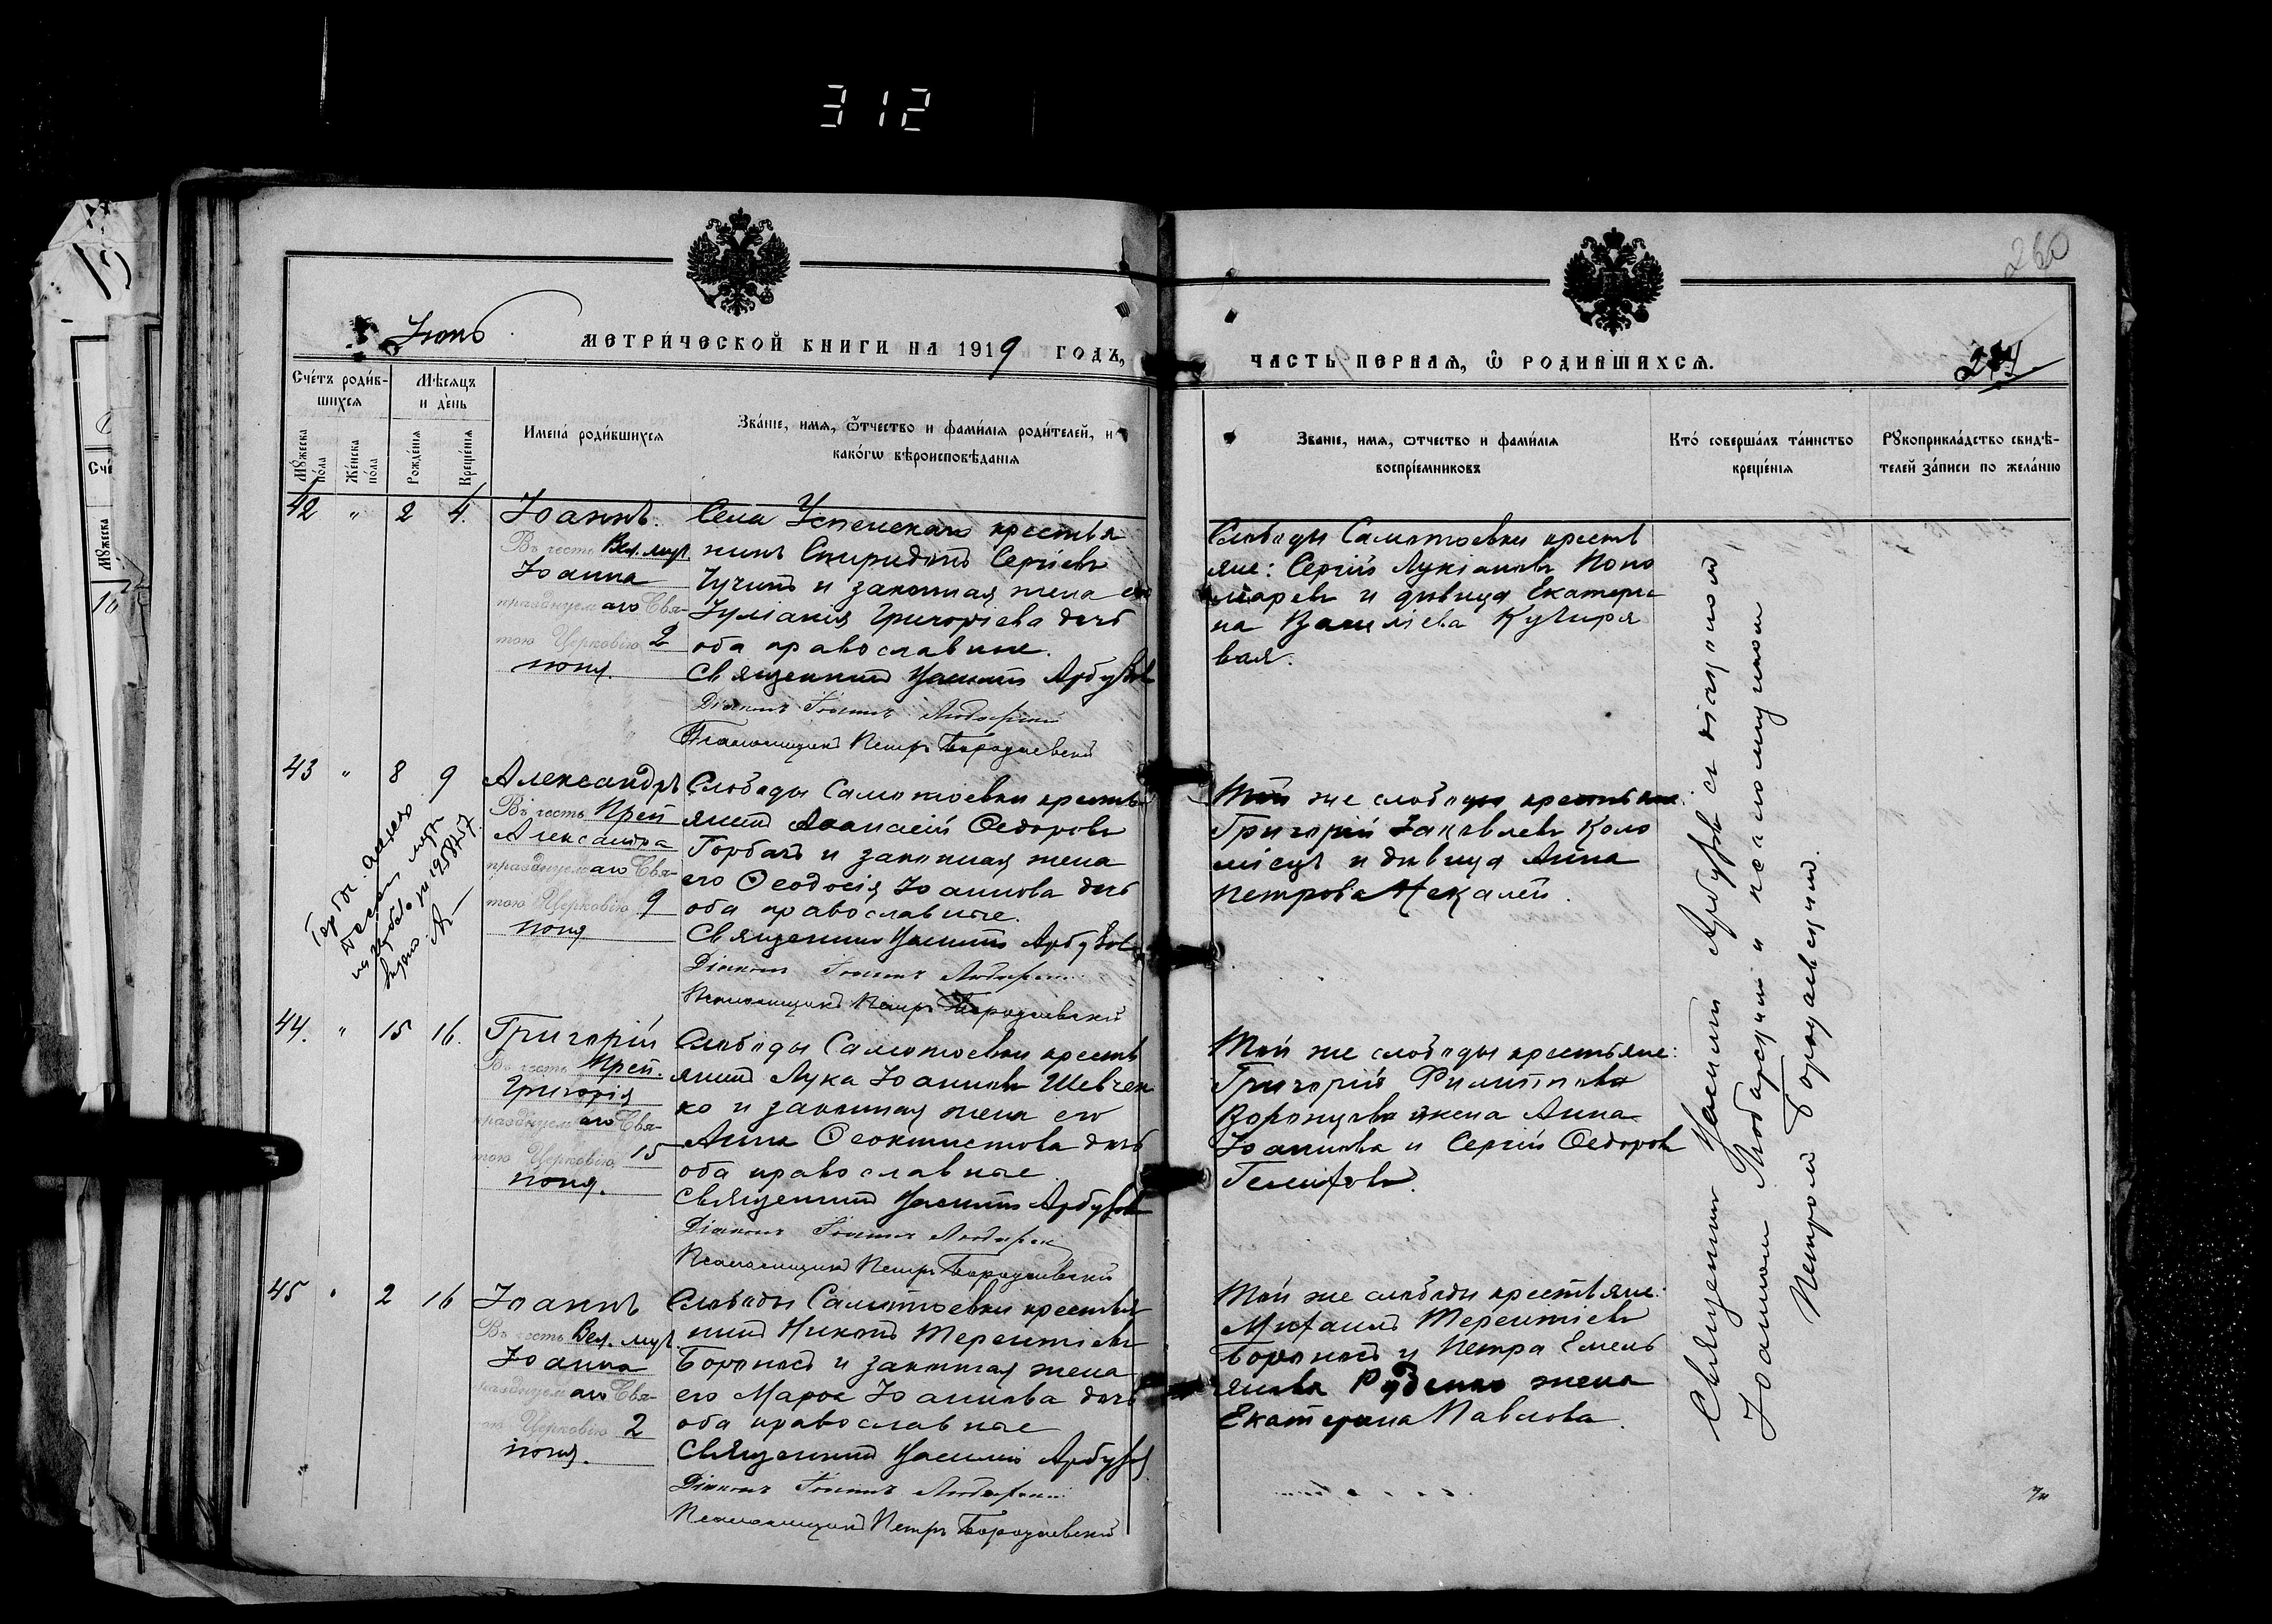 312
260
Іюнь
МЕТРИ́ЧЕСКОЙ КНИГИ НА 1919 ГОДЪ,
ЧАСТЬ ПЕРВАЯ, Ѡ РОДИВШИХСЯ.
Сче́тъ роди́в-
шихся
Мѣсяцъ
и де́нь
Мꙋ́жеска
по́ла
Же́нска
по́ла
Рожде́нія
Креще́нія
Имена́ роди́вшихся
Зва́ніе, имя, ѿтчество и фами́лія роди́телей, и
како́гѡ вѣроисповѣ́данія
Званіе, имя, ѿтчество и фами́лія
воспріе́мниковъ
Кто́ соверша́лъ та́инство
креще́нія
Рꙋкоприкла́дство свидѣ́-
телей за́писи по жела́нію
42 " 2 4.
Іоаннъ.
Въ честь Вел. муч.
Іоанна
празднуемаго Свя-
тою Церковію 2
іюня.
Села Успенскаго крестья
нинъ Спиридонъ Сергіевъ
и законная жена его
Іуліанія Григоріева дочь
оба православные.
Священникъ Арбузов
Діаконъ Іоаннъ
Псаломщикъ Петръ Бородаевскій
Слободы Самотоевки кресть
яне: Сергій Лукіановъ Поно
маревъ и дѣвица Екатери
на Василіева Кучеря
вая.
43 " 8 9
Александръ
Въ честь Преп
Александра
празднуемаго Свя-
тою Церковію 9
іюня
Слободы Самотоевки кресть
янинъ Аѳанасій Ѳедоровъ
Горбачъ и законная жена
его Ѳеодосія Іоаннова дочь
оба православные.
Священникъ Арбузов
Діаконъ Іоаннъ
Псаломщикъ Петръ Бородаевскій
Той же слободы крестьяне:
Григорій Іаковлевъ Коло
міецъ и дѣвица Анна
Петрова Чекалей.
44. " 15 16.
Григорій
Въ честь Преп.
Григорія
празднуемаго Свя-
тою Церковію 15
іюня.
Слободы Самотоевки кресть
янинъ Лука Іоанновъ Шевчен
ко и законная жена его
Анна Ѳеоктистова дочь
оба православные
Священникъ Арбузов
Діаконъ Іоаннъ
Псаломщикъ Петръ Бородаевскій
Той же слободы крестьяне:
Григорій Филиппова
Воронцова жена Анна
Іоаннова и Сергій Ѳедоров
45 " 2 16
Іоаннъ
Въ честь Вел. муч.
Іоанна
празднуемаго Свя-
тою Церковію 2
іюня.
Слободы Самотоевки крестья
нинъ Никонъ Терентіевъ
Бороносъ и законная жена
его Марѳа Іоаннова дочь
оба православные
Священникъ Арбузов
Діаконъ Іоаннъ
Псаломщикъ Петръ Бородаевскій
Той же слободы крестьяне:
Михаилъ Терентіевъ
Бороносъ и Петра Емель
янова Руденко жена
Екатерина Павлова.
Священникъ Арбузовъ съ діакономъ
Іоанномъ и псаломщикомъ
Петромъ Бородаевскимъ.